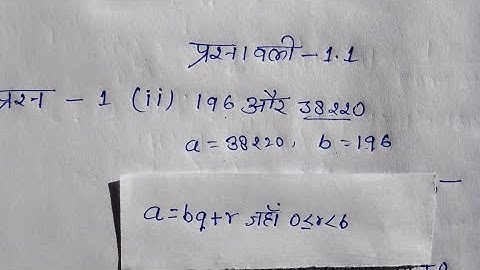 प्रश्नावली - 1.1
प्रश्न - 1 (ii) 196 और 38220
a = 38220, b = 196
a = bq + r जहाँ 0 ≤ r < b